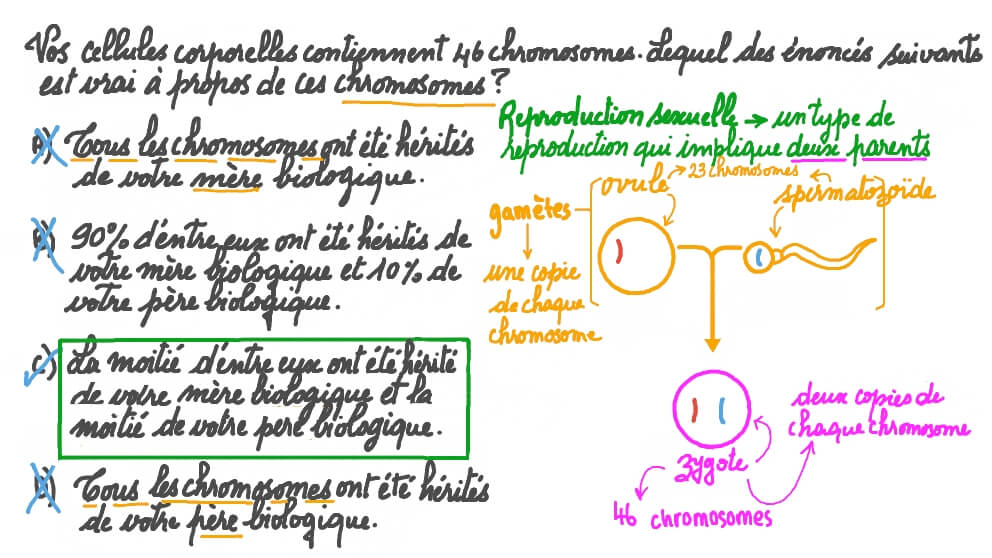 Vos cellules corporelles contiennent 46 chromosomes. Lequel des énoncés suivants
est vrai à propos de ces chromosomes ?
A) Tous les chromosomes ont été hérités
de votre mère biologique.
B) 90% d'entre eux ont été hérités de
votre mère biologique et 10% de
votre père biologique.
C) La moitié d'entre eux ont été hérité
de votre mère biologique et la
moitié de votre père biologique.
D) Tous les chromosomes ont été hérités
de votre père biologique.
Reproduction sexuelle → un type de
reproduction qui implique deux parents
ovule → 23 chromosomes ←
spermatozoïde
gamètes
une copie
de chaque
chromosome
zygote
46 chromosomes
deux copies de
chaque chromosome